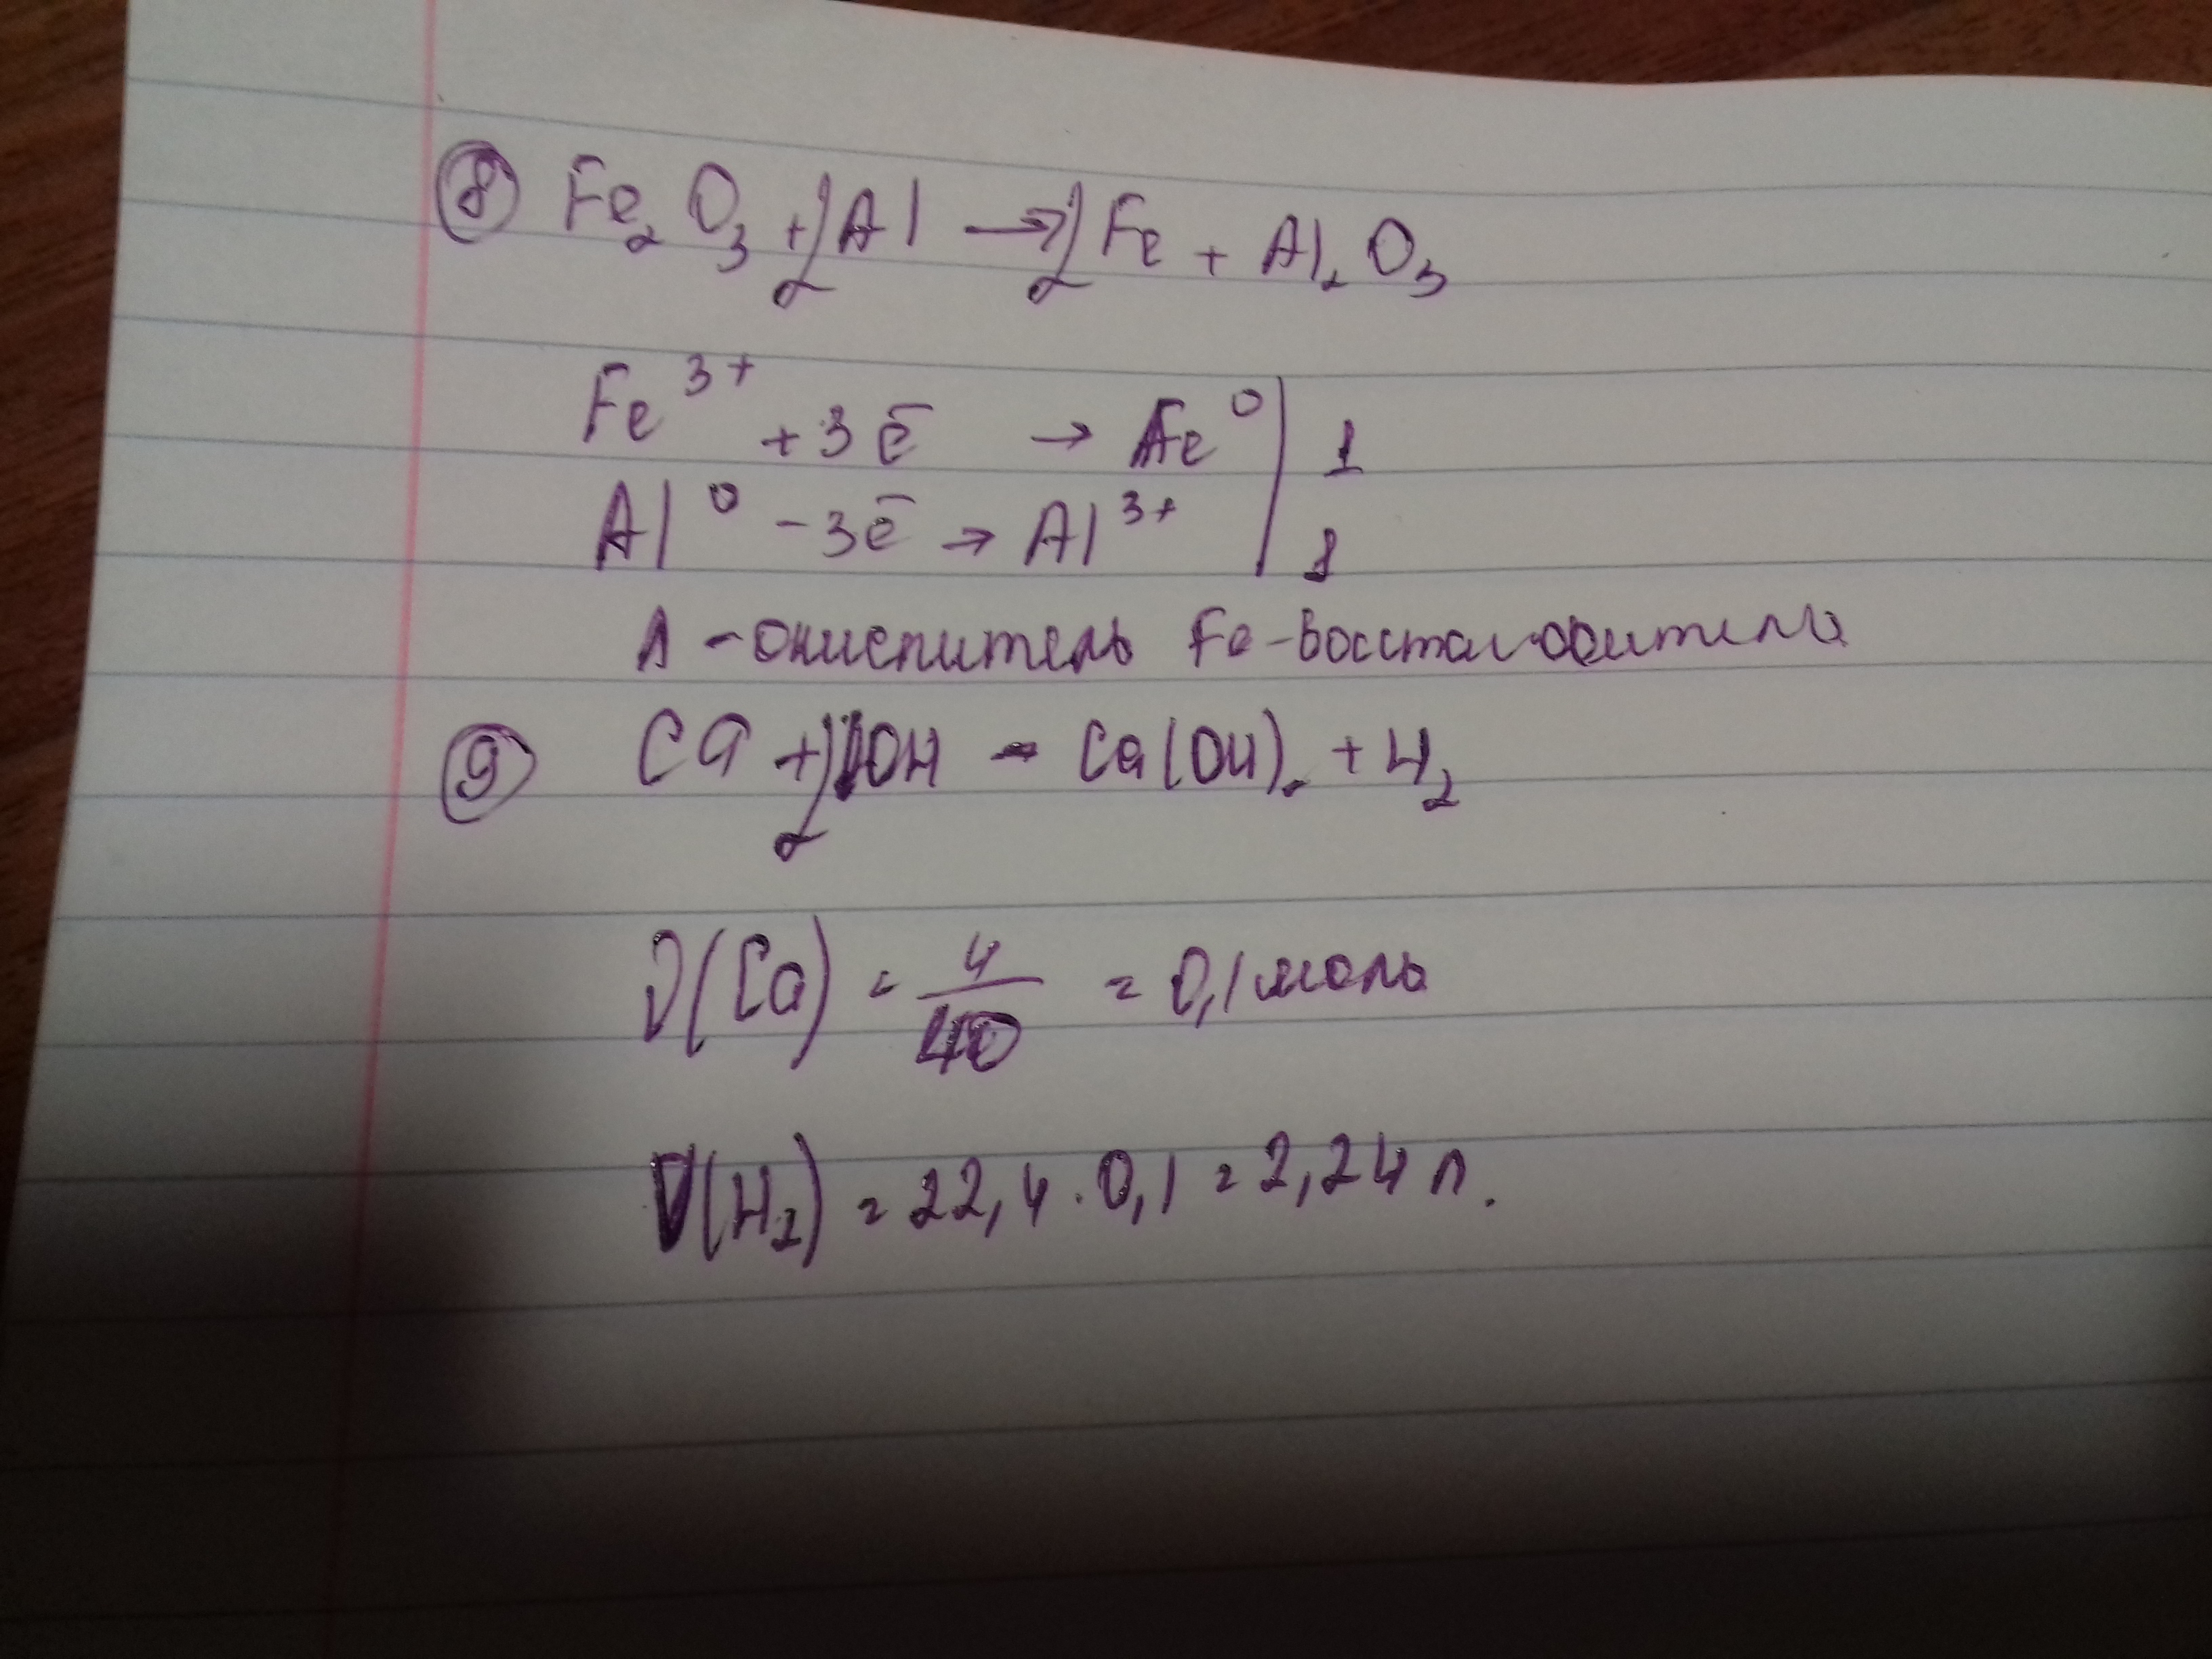 8 Fe₂O₃ + 2Al → 2Fe + Al₂O₃
Fe³⁺ + 3ē → Fe⁰ | 1
Al⁰ - 3ē → Al³⁺ | 1
А - окислитель Fe - восстановитель
9 Ca + 2HOH = Ca(OH)₂ + H₂
ν(Ca) = 4/40 = 0,1 моль
V(H₂) = 22,4 · 0,1 = 2,24 л.